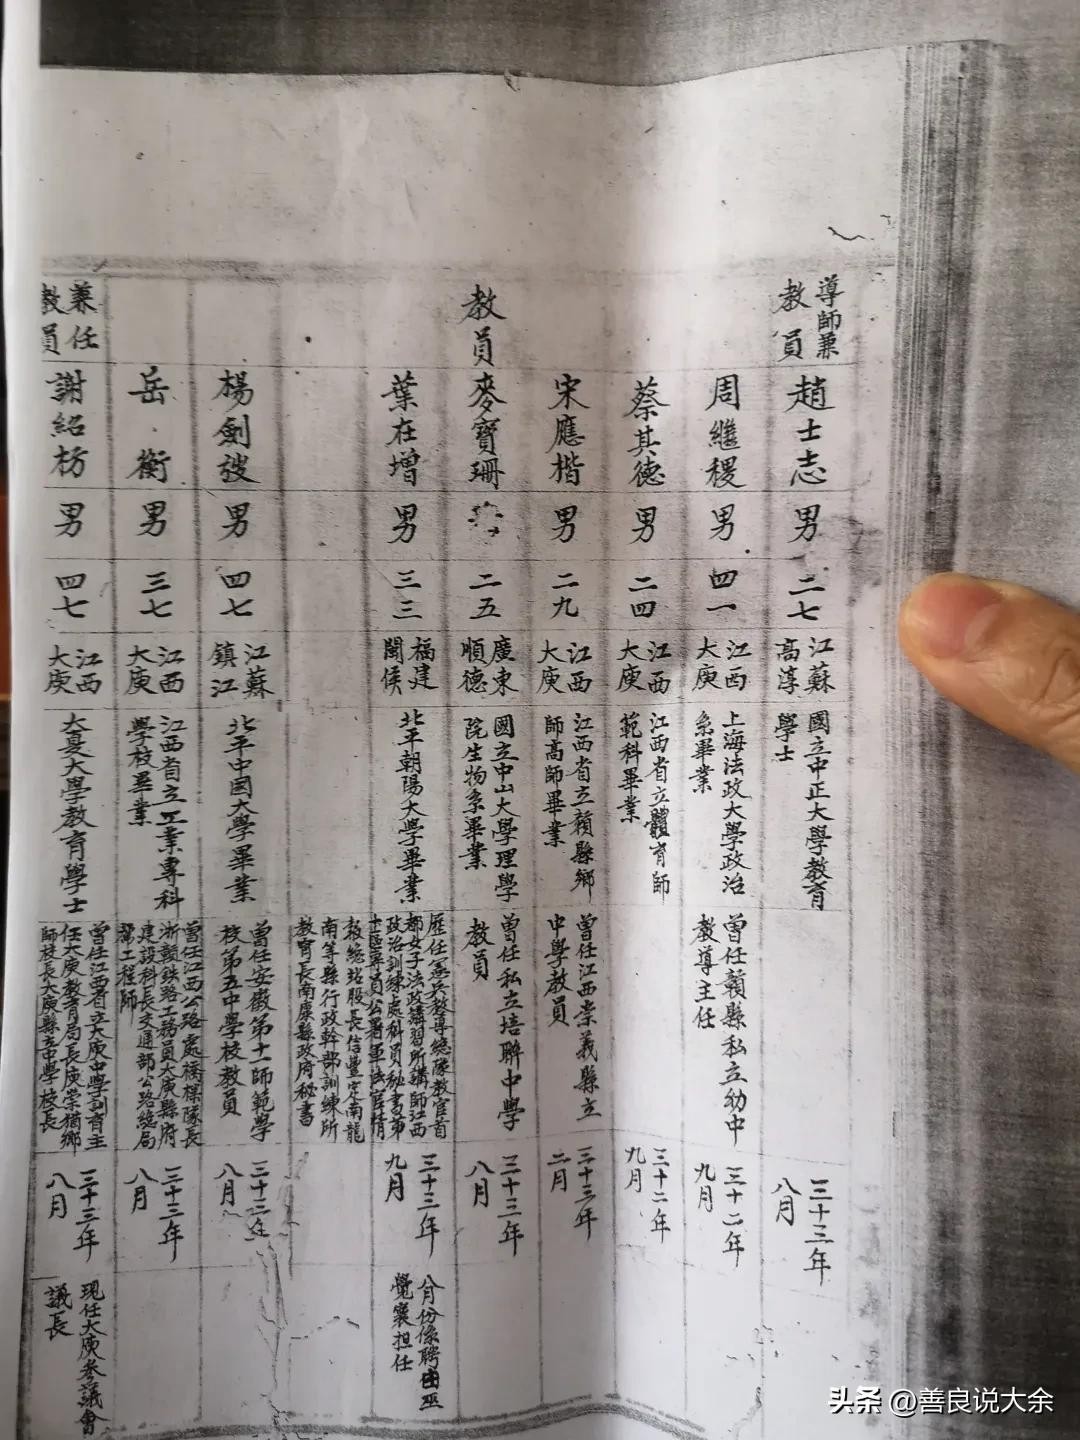 導師兼
教員
趙士志
男
二七
江蘇
高淳
國立中正大學教育
學士
三十三年
八月
周繼稷
男
四一
江西
大庾
上海法政大學政治
系畢業
曾任贛縣私立幼中
教導主任
三十二年
九月
蔡其德
男
二四
江西
大庾
江西省立體育師
範科畢業
三十二年
九月
宋應楷
男
二九
江西
大庾
江西省立贛縣鄉
師高師畢業
曾任江西崇義縣立
中學教員
三十三年
二月
教員
麥寶珊
二五
廣東
順德
國立中山大學理學
院生物系畢業
曾任私立培聯中學
教員
三十三年
八月
葉在增
男
三三
福建
閩侯
北平朝陽大學畢業
歷任憲兵教導總隊教官首
都女子法政講習所講師江西
政治訓練處科員秘書第
區專員公署軍法官精
教總站股長信豐定南龍
南等縣行政幹部訓練所
教育長南康縣政府秘書
三十三年
九月
八月份係聘由巫
覺襄担任
楊劍
男
四七
江蘇
鎮江
北平中國大學畢業
曾任安徽第十一師範學
校第五中學校教員
三十三年
八月
岳衡
男
三七
江西
大庾
江西省立工業專科
學校畢業
曾任江西公路處橋樑隊長
浙贛鉄路工務員大庾縣府
建設科長交通部公路總局
工程師
三十三年
八月
兼任
教員
謝紹枋
男
四七
江西
大庾
大夏大學教育學士
曾任江西省立大庾中學訓育主
任大庾教育局長庾崇猶鄉
師校長大庾縣立中學校長
三十三年
八月
現任大庾參議會
議長
头条 @善良说大余